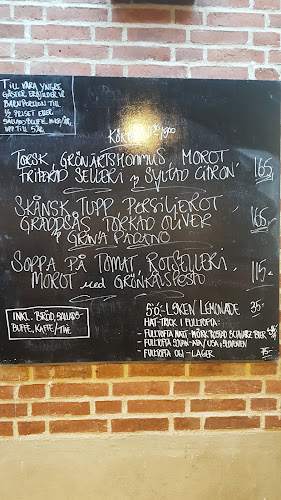 TILL VÅRA YNGRE
GÄSTER ERBJUDER VI
BARNPORTION TILL
½ PRISET ELLER
SALLADSBUFFÉ
UPP TILL 5 ÅR.
TORSK, GRÖNÄRTSHUMMUS, MOROT
FRITERAD SELLERI & SYLTAD CITRON 165,-
SKÅNSK TUPP, PERSILJEROT,
GRÄDDSÅS, TORKAD OLIVER
& GRANA PADANO 165,-
SOPPA PÅ TOMAT, ROTSELLERI,
MOROT MED GRÖNKÅLSPESTO 115,-
INKL. BRÖD, SALLADS-
BUFFÉ, KAFFE/THÉ
LEMONADE 35,-
HAT-TRICK I FULLTOFTA:
- FULLTOFTA NATT - MÖRK ROSTAD SCHWARZ BIER
- FULLTOFTA
- FULLTOFTA - LAGER 75,-